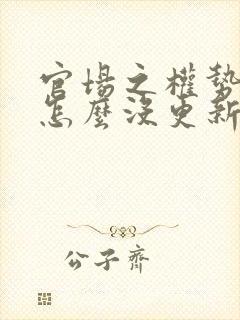 官場之權勢
怎麼沒更新
公子齊